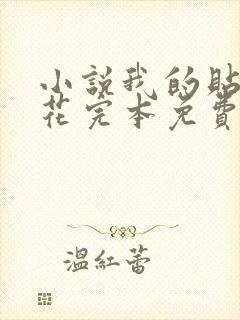 小說我的貼
花完本免費
溫紅蕾